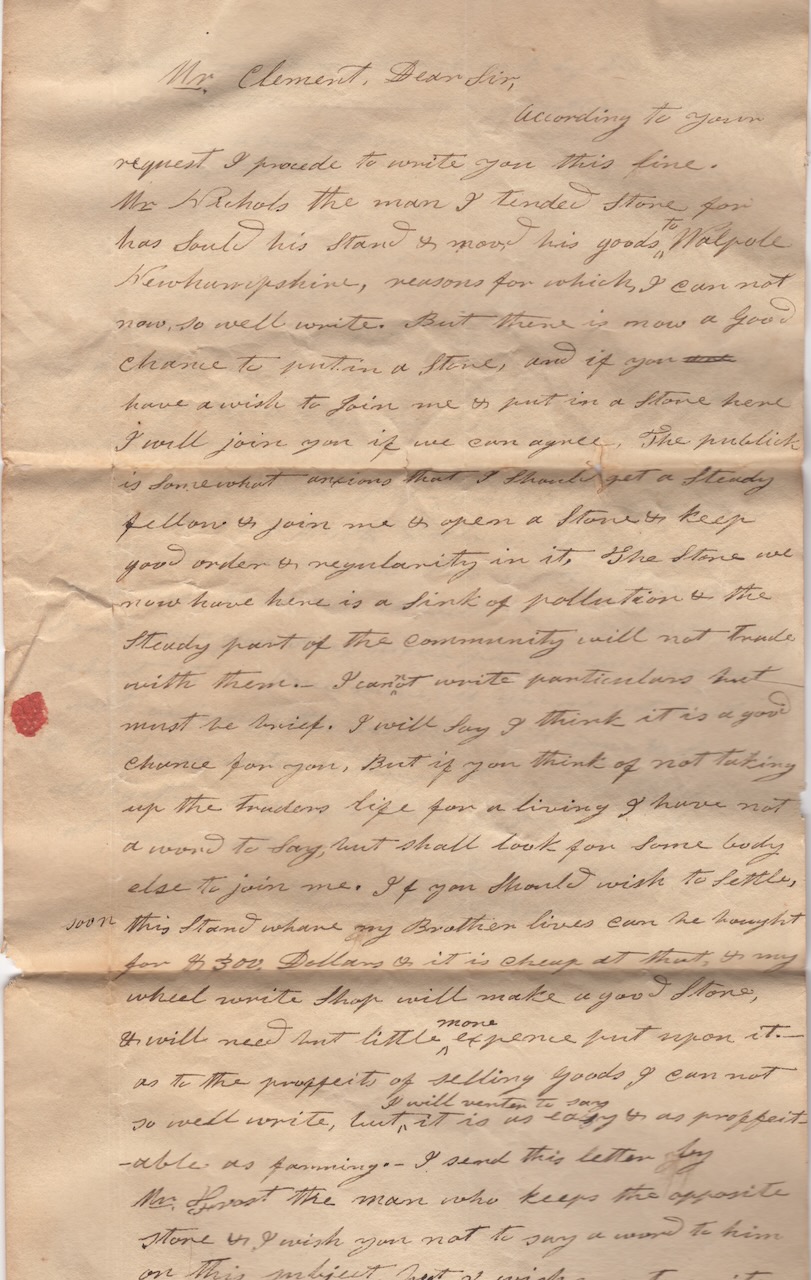 Mr. Clement, Dear Sir,
According to your
request I procede to write you this line.
Mr Nichols the man I tended Store for
has Sould his Stand & moved his goods to Walpole
Newhampshire, reasons for which, I can not
now, so well write. But there is now a Good
chance to put in a Store, and if you
have a wish to Join me & put in a Store here
I will join you if we can agree. The publick
is Somewhat anxious that I Should get a Steady
fellow & join me & open a Store & keep
good order & regularity in it. The Store we
now have here is a Sink of pollution & the
Steady part of the community will not trade
with them.- I cannot write particulars but
must be brief. I will Say I think it is a good
chance for you, But if you think of not taking
up the traders life for a living I have not
a word to Say, but shall look for Some body
else to join me. If you Should wish to Settle,
soon this Stand whare my Brother lives can be bought
for $ 300. Dollars & it is cheap at that, & my
wheel write Shop will make a good Store,
& will need but little more expence put upon it.-
as to the proffeits of selling Goods I can not
so well write, but, I will venter to say it is as easy & as proffeit-
-able as farming.- I send this letter by
Mr. Frost the man who keeps the opposite
store & I wish you not to say a word to him
on this subject but I wish